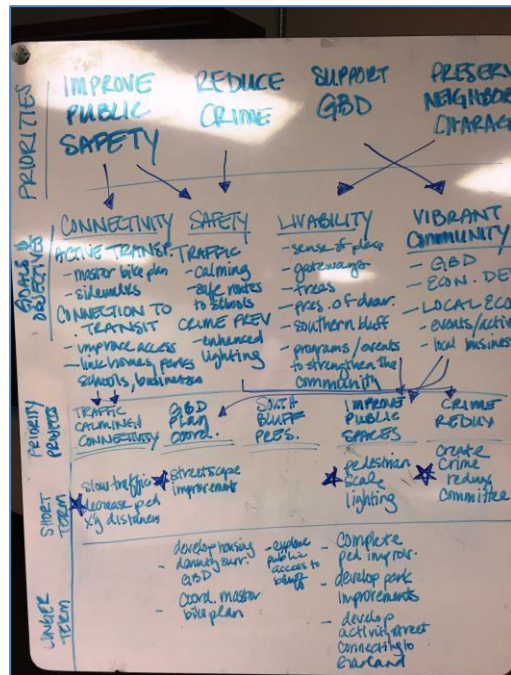 PRIORITIES
IMPROVE
PUBLIC
SAFETY
REDUCE
CRIME
SUPPORT
GBD
PRESERV
NEIGHBOR
CHARAC
GOALS &
OBJECTIVES
CONNECTIVITY
ACTIVE TRANSP.
- master bike plan
- sidewalks
CONNECTION TO
TRANSIT
- improve access
- link homes, parks
schools, businesses
SAFETY
TRAFFIC
- calming
- safe routes
to schools
CRIME PREV
- enhanced
lighting
LIVABILITY
- sense of place
- gateways
- trees
- pres. of char.
- southern bluff
- programs/events
to strengthen the
community
VIBRANT
COMMUNITY
- GBD
- ECON. DEV
- LOCAL ECO
- events/activi
- local busines
PRIORITY
PROJECTS
TRAFFIC
CALMING &
CONNECTIVITY
GBD
PLAN
COORD.
SOUTH
BLUFF
PRES.
IMPROVE
PUBLIC
SPACES
CRIME
REDUX
SHORT
TERM
slow traffic
decrease ped
x'g distances
streetscape
improvements
pedestrian
scale
lighting
create
crime
redux
committee
LONGER
TERM
- develop housing
density surr.
GBD
- coord. master
bike plan
- explore
public
access to
bluff
- complete
ped improv.
- develop park
improvements
- develop
activity street
connecting to
Garland